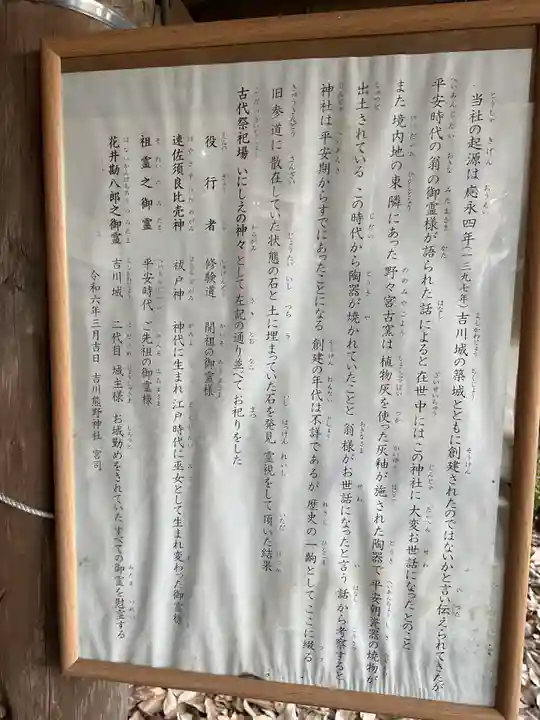 当社の起源は 應永四年(一三九七年)吉川城の築城とともに創建されたのではないかと言い伝えられてきたが
平安時代の翁の御霊様が語られた話によると在世中にはこの神社に大変お世話になったとのこと
また 境内地の東隣にあった野々宮古窯は 植物灰を使った灰釉が施された陶器で 平安朝瓷器の焼物が
出土されている この時代から陶器が焼かれていたことと 翁様がお世話になったと言う話から考察すると
神社は平安期からすでにあったことになる 創建の年代は不詳であるが 歴史の一齣としてここに綴る
旧参道に散在していた状態の石と土に埋まっていた石を発見 霊視をして頂いた結果
古代祭祀場 いにしえの神々として左記の通り並べてお祀りをした
役行者 修験道 開祖の御霊様
速佐須良比売神 祓戸神 神代に生まれ 江戸時代に巫女として生まれ変わった御霊様
祖霊之御霊 平安時代 ご先祖の御霊様
花井勘八郎之御霊 吉川城 二代目 城主様 お城勤めをされていたすべての御霊を慰霊する
令和六年三月吉日 吉川熊野神社 宮司